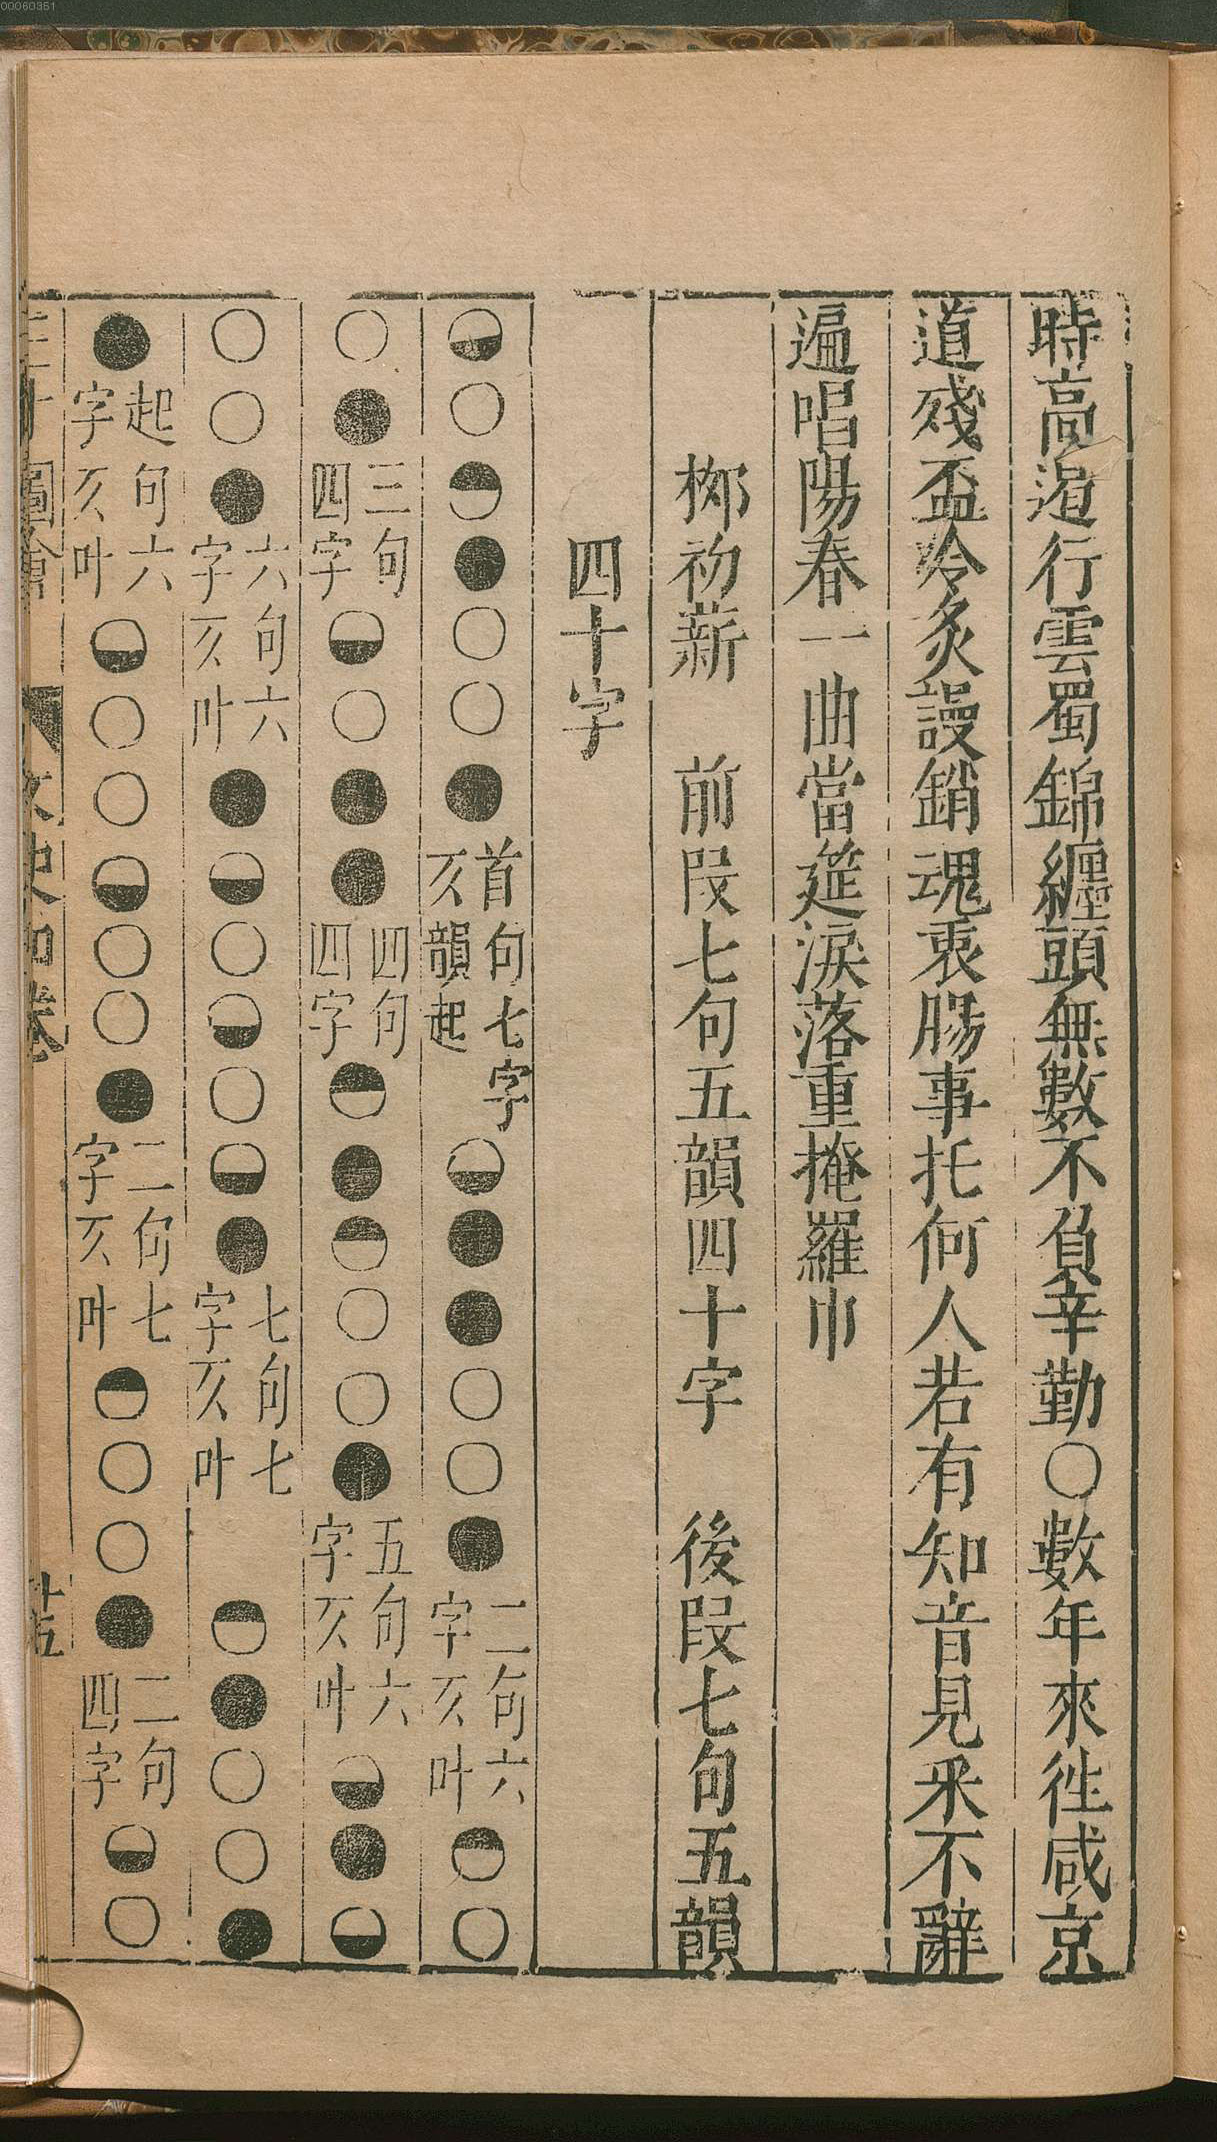 00060351
時高遏行雲蜀錦纏頭無數不負辛勤〇數年來徃咸京
道殘盃冷炙謾銷魂衷腸事托何人若有知音見采不辭
遍唱陽春一曲當筵淚落重掩羅巾
栁初新 前段七句五韻四十字 後段七句五韻
四十字
◒○◓●○○●首句七字仄韻起◒●●○○●二句六字仄叶◓○
○●三句四字◒○●●四句四字◓●◓○○●五句六字仄叶◒●◒
○○●六句六字仄叶●◒○◒○◒●七句七字仄叶 ◓●○○●
●起句六字仄叶◒○○◒○○●二句七字仄叶◓○○●二句四字◒○
三才圖會 文史四卷 廿五